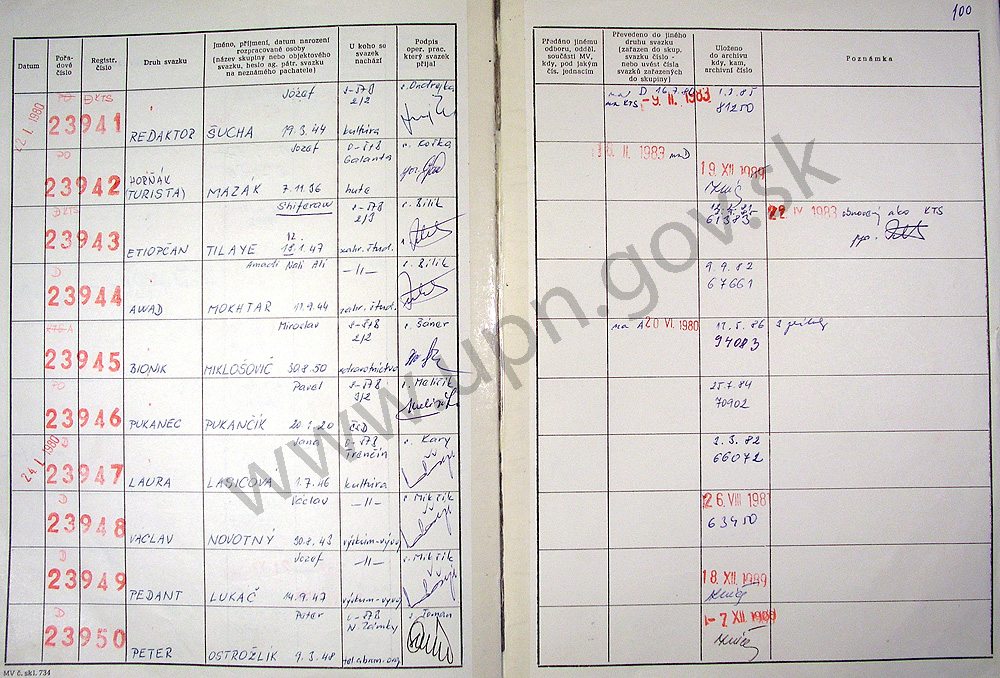 100
Datum
Pořa-
dové
číslo
Registr.
číslo
Druh svazku
Jméno, příjmení, datum narození
rozpracované osoby
(název skupiny nebo objektového
svazku, heslo ag. pátr. svazku
na neznámého pachatele)
U koho se
svazek
nachází
Podpis
oper. prac.
který svazek
přijal
Předáno jinému
odboru, odděl.
součásti MV,
kdy, pod jakým
čís. jednacím
Převedeno do jiného
druhu svazku
(zařazen do skup.
svazku číslo -
nebo uvést čísla
svazků zařazených
do skupiny)
Uloženo
do archivu
kdy, kam,
archivní číslo
Poznámka
22. I. 1980
PO DKTS
23941
REDAKTOR
Józef
ŠUCHA 19.3.44
S-ŠTB
2/2
kultúra
s. Ondrejka
na D 16.7.80
na KTS -9. II. 1983
1.2.85
81250
PO
23942
HORŇÁK
(TURISTA)
Jozef
MAZÁK 7.11.36
O-ŠTB
Galanta
huta
s. Kočka
16. II. 1983 na D
19. XII 1989
DKTS
23943
ETIOPČAN
Shiferaw
TILAYE 12.1.47
S-ŠTB
2/3
zahr. štud.
s. Bilik
61385
22 IV 1983 obnovený ako KTS
D
23944
AWAD
Amadi Nali Ali
MOKHTAR 11.9.44
—11—
zahr. štud.
s. Bilik
9.9.82
67661
KTS-A
23945
BIONIK
Miroslav
MIKLOŠOVIČ 30.8.50
S-ŠTB
2/2
zdravotníctvo
s. Šáner
na A 20 VI. 1980
12.5.86
94083
PO
23946
PUKANEC
Pavel
PUKANČÍK 20.1.20
S-ŠTB
3/2
ČSD
s. Maličik
25.7.84
70902
24. I. 1980
D
23947
LAURA
Jana
LASICOVÁ 1.7.46
O-ŠTB
Trenčín
kultúra
s. Kary
2.3.82
66072
D
23948
VACLAV
Václav
NOVOTNÝ 30.8.43
—11—
výskum-vývoj
s. Mikřík
26. VIII 1981
63450
D
23949
PEDANT
Jozef
LUKAČ 14.9.47
—11—
výskum-vývoj
s. Mikřík
18. XII. 1989
D
23950
PETER
Peter
OSTROŽLIK 9.3.48
O-ŠTB
N. Zámky
s. Toman
XII. 1989
MV č. skl. 734
www.upn.gov.sk